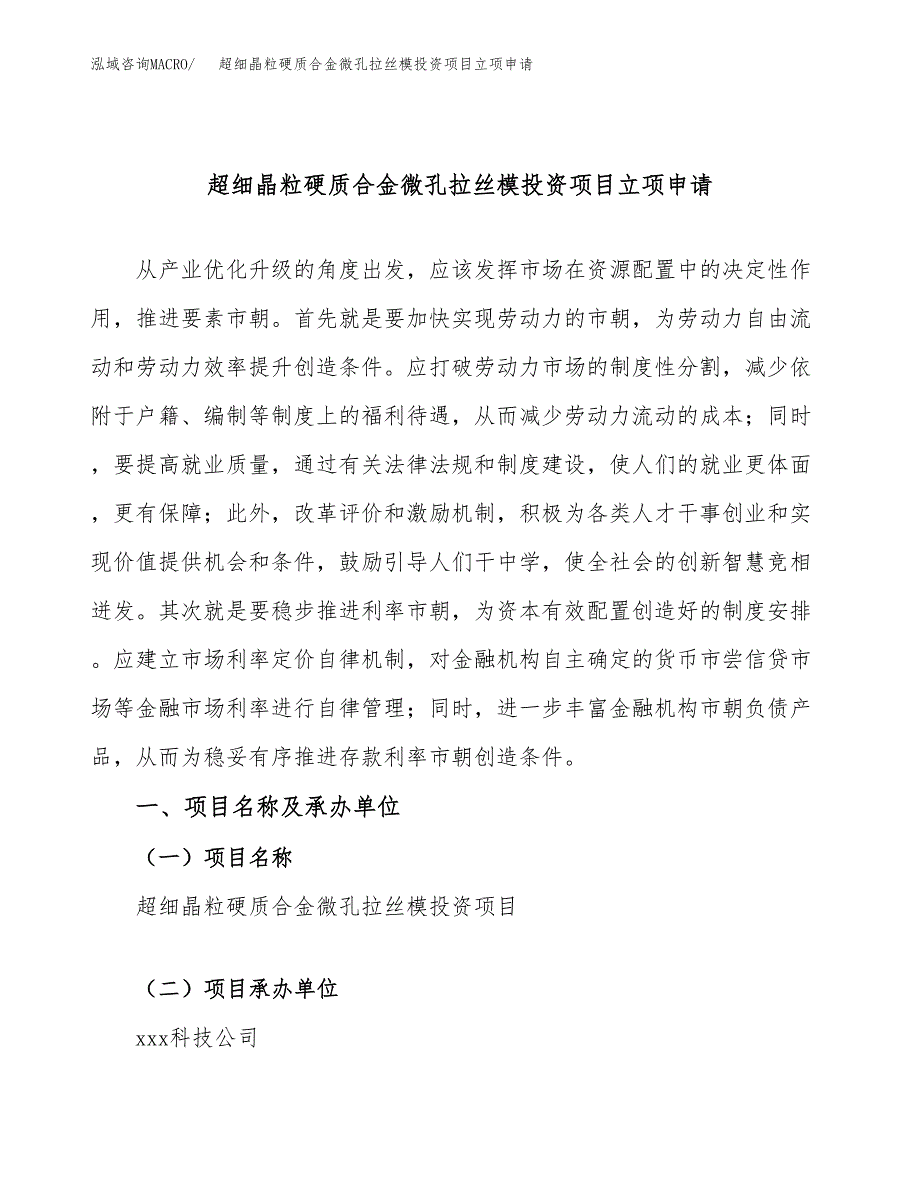 泓域咨询MACRO/ 超细晶粒硬质合金微孔拉丝模投资项目立项申请
超细晶粒硬质合金微孔拉丝模投资项目立项申请
从产业优化升级的角度出发，应该发挥市场在资源配置中的决定性作
用，推进要素市朝。首先就是要加快实现劳动力的市朝，为劳动力自由流
动和劳动力效率提升创造条件。应打破劳动力市场的制度性分割，减少依
附于户籍、编制等制度上的福利待遇，从而减少劳动力流动的成本；同时
，要提高就业质量，通过有关法律法规和制度建设，使人们的就业更体面
，更有保障；此外，改革评价和激励机制，积极为各类人才干事创业和实
现价值提供机会和条件，鼓励引导人们干中学，使全社会的创新智慧竞相
迸发。其次就是要稳步推进利率市朝，为资本有效配置创造好的制度安排
。应建立市场利率定价自律机制，对金融机构自主确定的货币市尝信贷市
场等金融市场利率进行自律管理；同时，进一步丰富金融机构市朝负债产
品，从而为稳妥有序推进存款利率市朝创造条件。
一、项目名称及承办单位
（一）项目名称
超细晶粒硬质合金微孔拉丝模投资项目
（二）项目承办单位
xxx科技公司